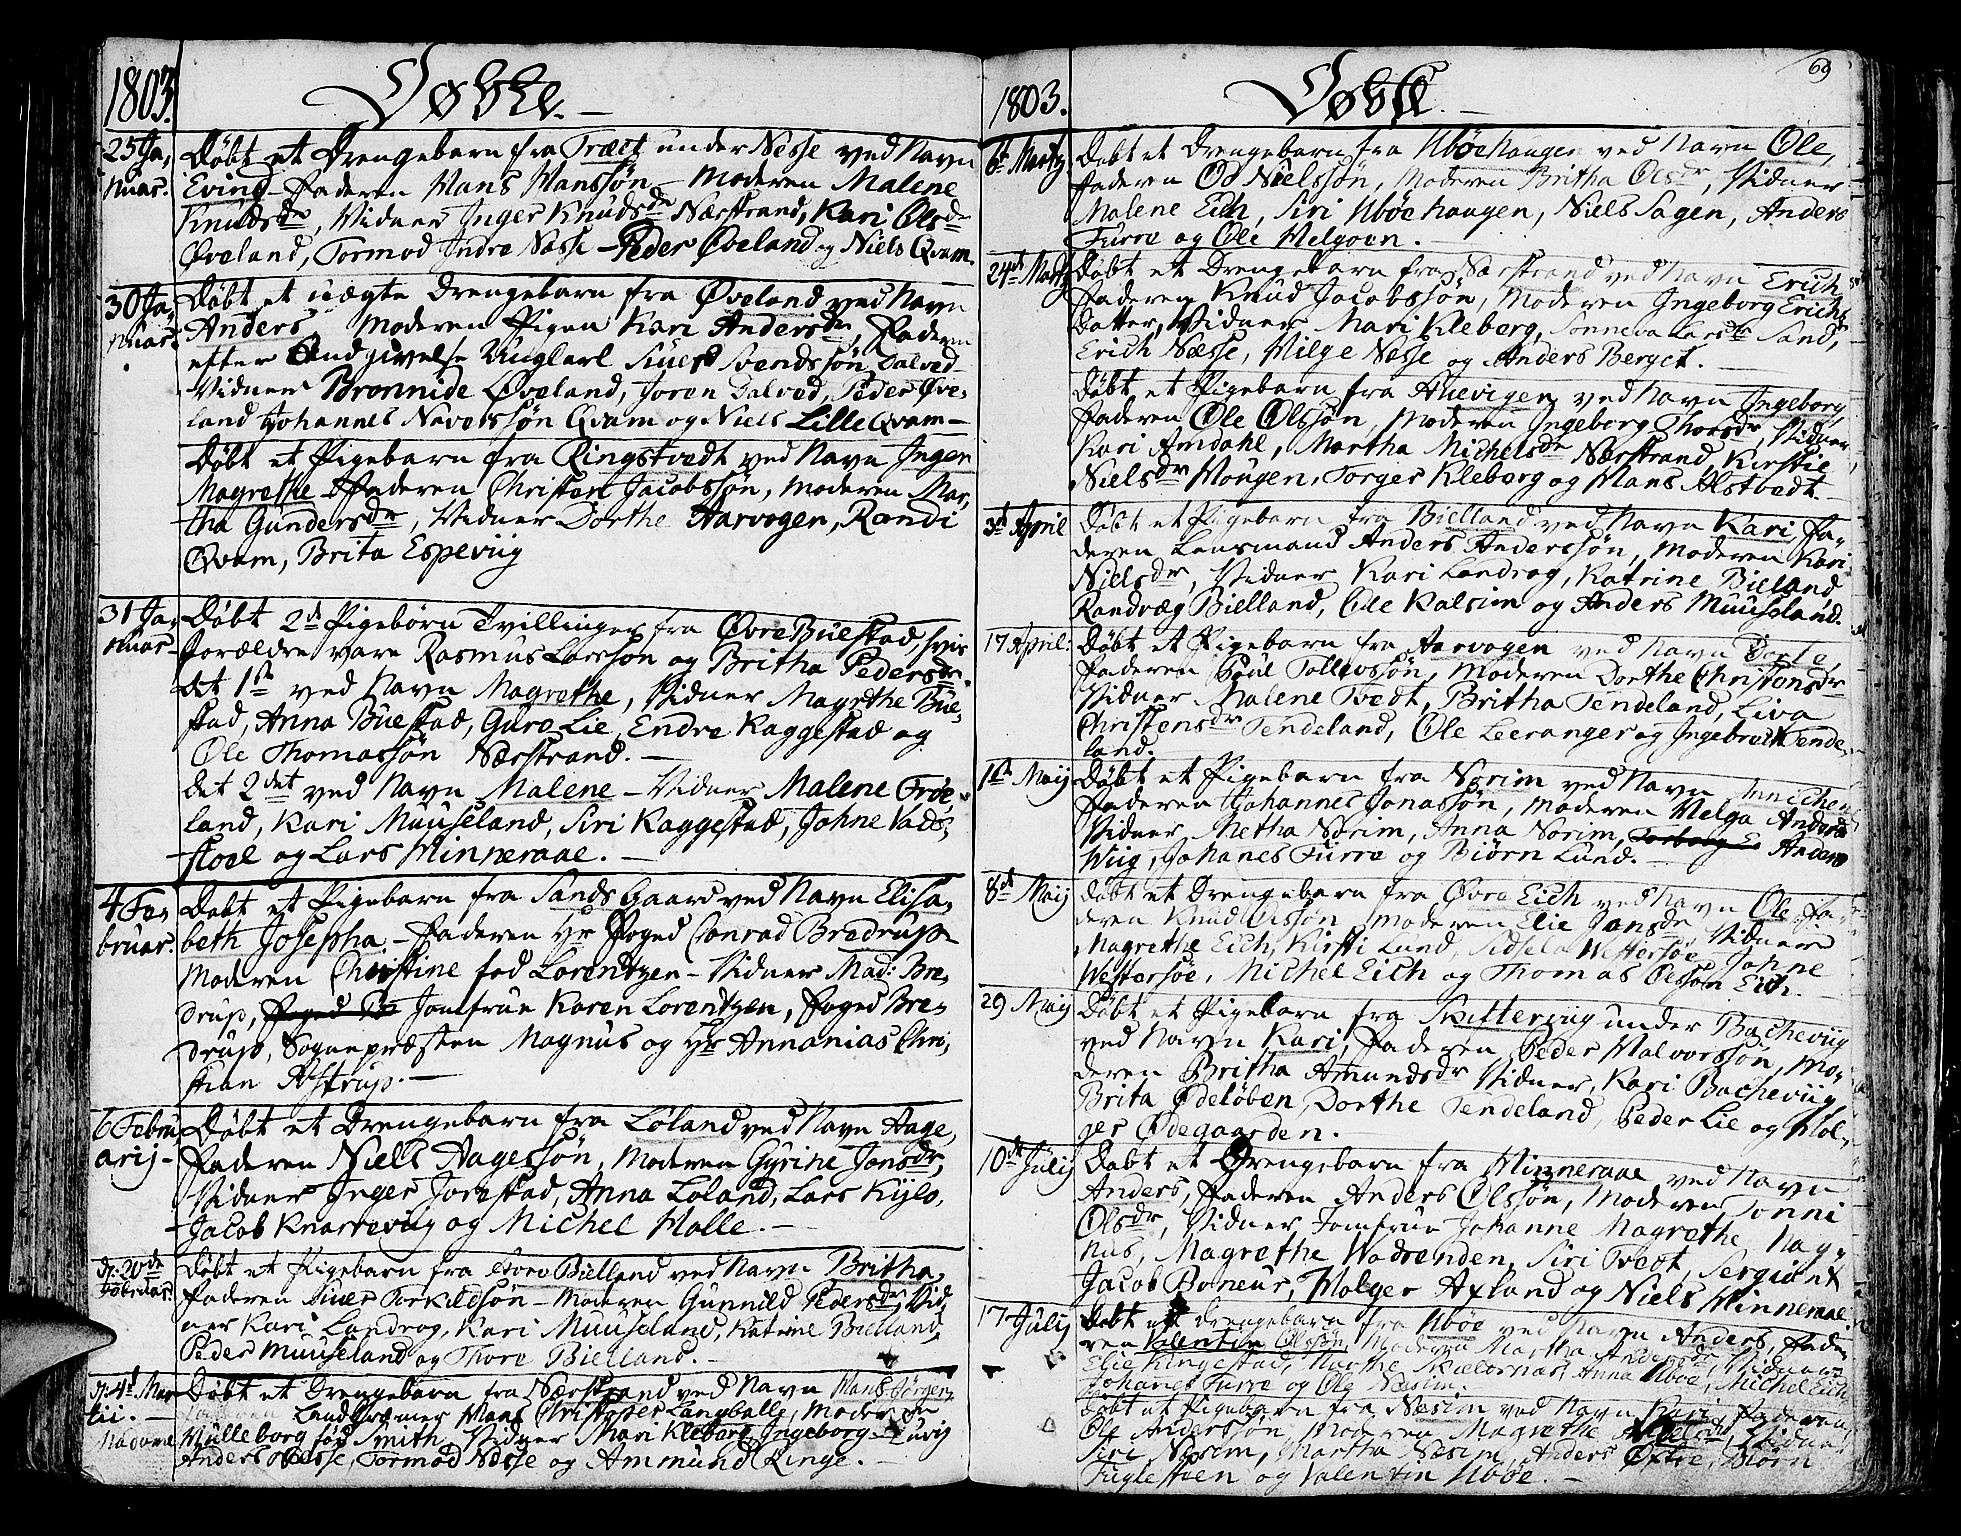 1803.
Døbte.
25 Ja,
nuar.
Døbt et Drengebarn fra Træet under Nesse ved Navn
Eving - Faderen Hans Hanssøn - Moderen Malene
Knudsdr, Vidner Inger Knudsdr Nærstrand, Kari Olsdr
Øveland, Tormod Indre Nesse - Peder Øveland og Niels Qvam.
30 Ja,
nuar.
Døbt et uægte Drengebarn fra Øveland ved Navn
Anders, Moderen Pigen Kari Andersdr, Faderen
efter Andgivelse Ungkarl Siuerd Svendssøn Dalved
Vidner Bronnide Øveland, Joren Dalved, Peder Øve-
land Johannes Naverssøn Qvam og Niels Lille Qvam -
Døbt et Pigebarn fra Ringstvedt ved Navn Inger
Magrethe - Faderen Christen Jacobssøn, Moderen Mar,
tha Gundersdr, Vidner Dorthe Aarvogen, Randi
Qvam, Brita Espeviig
31 Ja,
nuar-
Døbt 2de Pigebørn Tvillinger fra Øvre Buestad, hvis
Forældre vare Rasmus Larssøn og Britha Pedersdr.
det 1ste ved Navn Magrethe, Vidner Magrethe Bue,
stad, Anna Buestad, Guro Lie, Endre Kaggestad og
Ole Thomassøn Nærstrand. -
det 2det ved Navn Malene - Vidner Malene Frøe-
land, Kari Muuseland, Siri Kaggestad, Johne Vads,
stoel og Lars Hinneraae. -
4 Fe,
bruar.
Døbt et Pigebarn fra Sands Gaard ved Navn Elisa,
beth Josepha. - Faderen Hr Foged Conrad Bredrup
Moderen Christine fød Lorentzen - Vidner Mad: Bre,
drup, Jomfrue Karen Lorentzen, Foged Bre,
drup, Sognepræsten Magnus og Hr Annanias Chri,
stian Astrup. -
6 Febru
arij -
Døbt et Drengebarn fra Løland ved Navn Aage,
Faderen Niels Aagessøn, Moderen Gyrine Jonsdr,
Vidner Inger Jorestad, Anna Løland, Lars Kylo,
Jacob Knarreviig og Michel Halle. -
D: 20de
Februar.
Døbt et Pigebarn fra Bielland ved Navn Britha,
Faderen Siuer Torkildsøn - Moderen Gunnild Pedersdr, Vid,
ner Kari Landrog, Kari Muuseland, Katrine Bielland,
Peder Muuseland og Thore Bielland. -
D: 4de Mar
tii. -
Madame
Døbt et Drengebarn fra Nærstrand ved Navn Hans Jørgen,
Landkræmer Hans Christopher Langballe, Moderen
Mülleborg fød Smith, Vidner Mari Kleberg, Ingeborg
Anders Nesse, Tormod Nesse og Ammund Ringe. -
1803.
Døbte
69
6te Martij
Døbt et Drengebarn fra Ubøehaugen ved Navn Ole,
Faderen Od Nielssøn, Moderen Britha Olsdr, Vidner
Malene Eich, Siri Ubøehaugen, Niels Sagen, Anders
Furre og Ole Helgoen. -
24de Martij
Døbt et Drengebarn fra Nærstrand ved Navn Erich
Faderen Knud Jacobssøn, Moderen Ingeborg Erichs
Datter, Vidner Mari Kleberg, Sonneva Larsdr Sand,
Erich Næsse, Hilge Nesse og Anders Berget. -
Døbt et Pigebarn fra Auevigen ved Navn Ingeborg,
Faderen Ole Olssøn, Moderen Ingeborg Thoesdr, Vidner
Kari Amdahl, Martha Michelsdr Nærstrand Kirstie
Nielsdr Hougen, Torger Kleberg og Hans Alstvedt.
3de April
Døbt et Pigebarn fra Bielland ved Navn Kari, Fa,
deren Lensmand Anders Anderssøn, Moderen Kari
Nielsdr, Vidner Kari Landrog, Katrine Bielland
Randvæg Bielland, Ole Kalsim og Anders Muuseland.
17 April:
Døbt et Pigebarn fra Aarvogen ved Navn Dorte,
Faderen Poul Tollevssøn, Moderen Dorthe Christensdr
Vidner Malene Tvedt, Britha Tendeland, Liva
Christensdr Tendeland, Ole Leeranger og Ingebret Tende-
land.
1ste Maij
Døbt et Pigebarn fra Norim ved Navn Annichen
Faderen Johannes Jonassøn, Moderen Helga Andersdr
Vidner, Metha Norim, Anna Norim, Anders
Wiig, Johanes Furre og Biørn Lund. -
8de Maij
Døbt et Drengebarn fra Øvre Eich ved Navn Ole, Fa,
deren Knud Olssøn, Moderen Elie Jansdr, Vidner
Magrethe Eich, Kirsti Lund, Sidsela Westersøe, Johne
Westersøe, Michel Eich og Thomas Olssøn Eich.
29 Maij
Døbt et Pigebarn fra Skitterviig under Bacheviig
ved Navn Kari, Faderen Peder Halvorssøn, Mo,
deren Britha Amundsdr Vidner, Kari Bacheviig
Brita Ødeløben, Dorthe Tendeland, Peder Lie og Hol,
ger Ødegaarden.
10de Julij
Døbt et Drengebarn fra Hinneraae ved Navn
Anders, Faderen Anders Olssøn, Moderen Tonni
Olsdr, Vidner Jomfrue Johanne Magrethe Mag,
nus, Magrethe Wadrenden, Siri Tvedt, Sergiant
Jacob Boneur, Holger Axland og Niels Hinneraae.
17 Julij
Døbt et Drengebarn fra Ubøe ved Navn Anders, Fade,
ren Valentin Olssøn, Moderen Martha Andersdr, Vidner
Elie Ringestad, Marthe Skeiernes, Anna Ubøe, Michel Eich
Johanes Furre og Ole Nesim.
Døbt et Pigebarn fra Nesim ved Navn Kari, Faderen
Ole Anderssøn, Moderen Magrethe Vidner
Siri Nesim, Martha Nesim, Anders Østre, Biørn
Fuglesteen og Valentin Ubøe. -